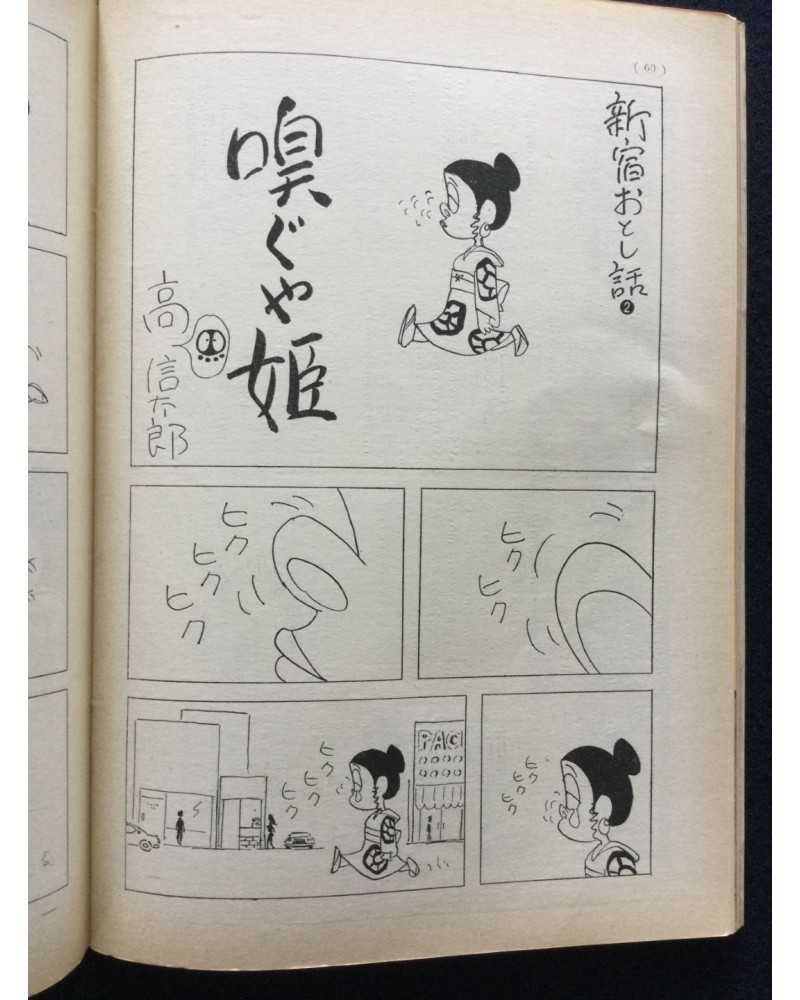 ( 60 )
新宿おとし話❷
嗅ぐや姫
高信太郎
ヒク
ヒク
ヒク
ヒク
ヒク
ヒク
ヒク
ヒク
ヒク
ヒク
ヒク
PAC